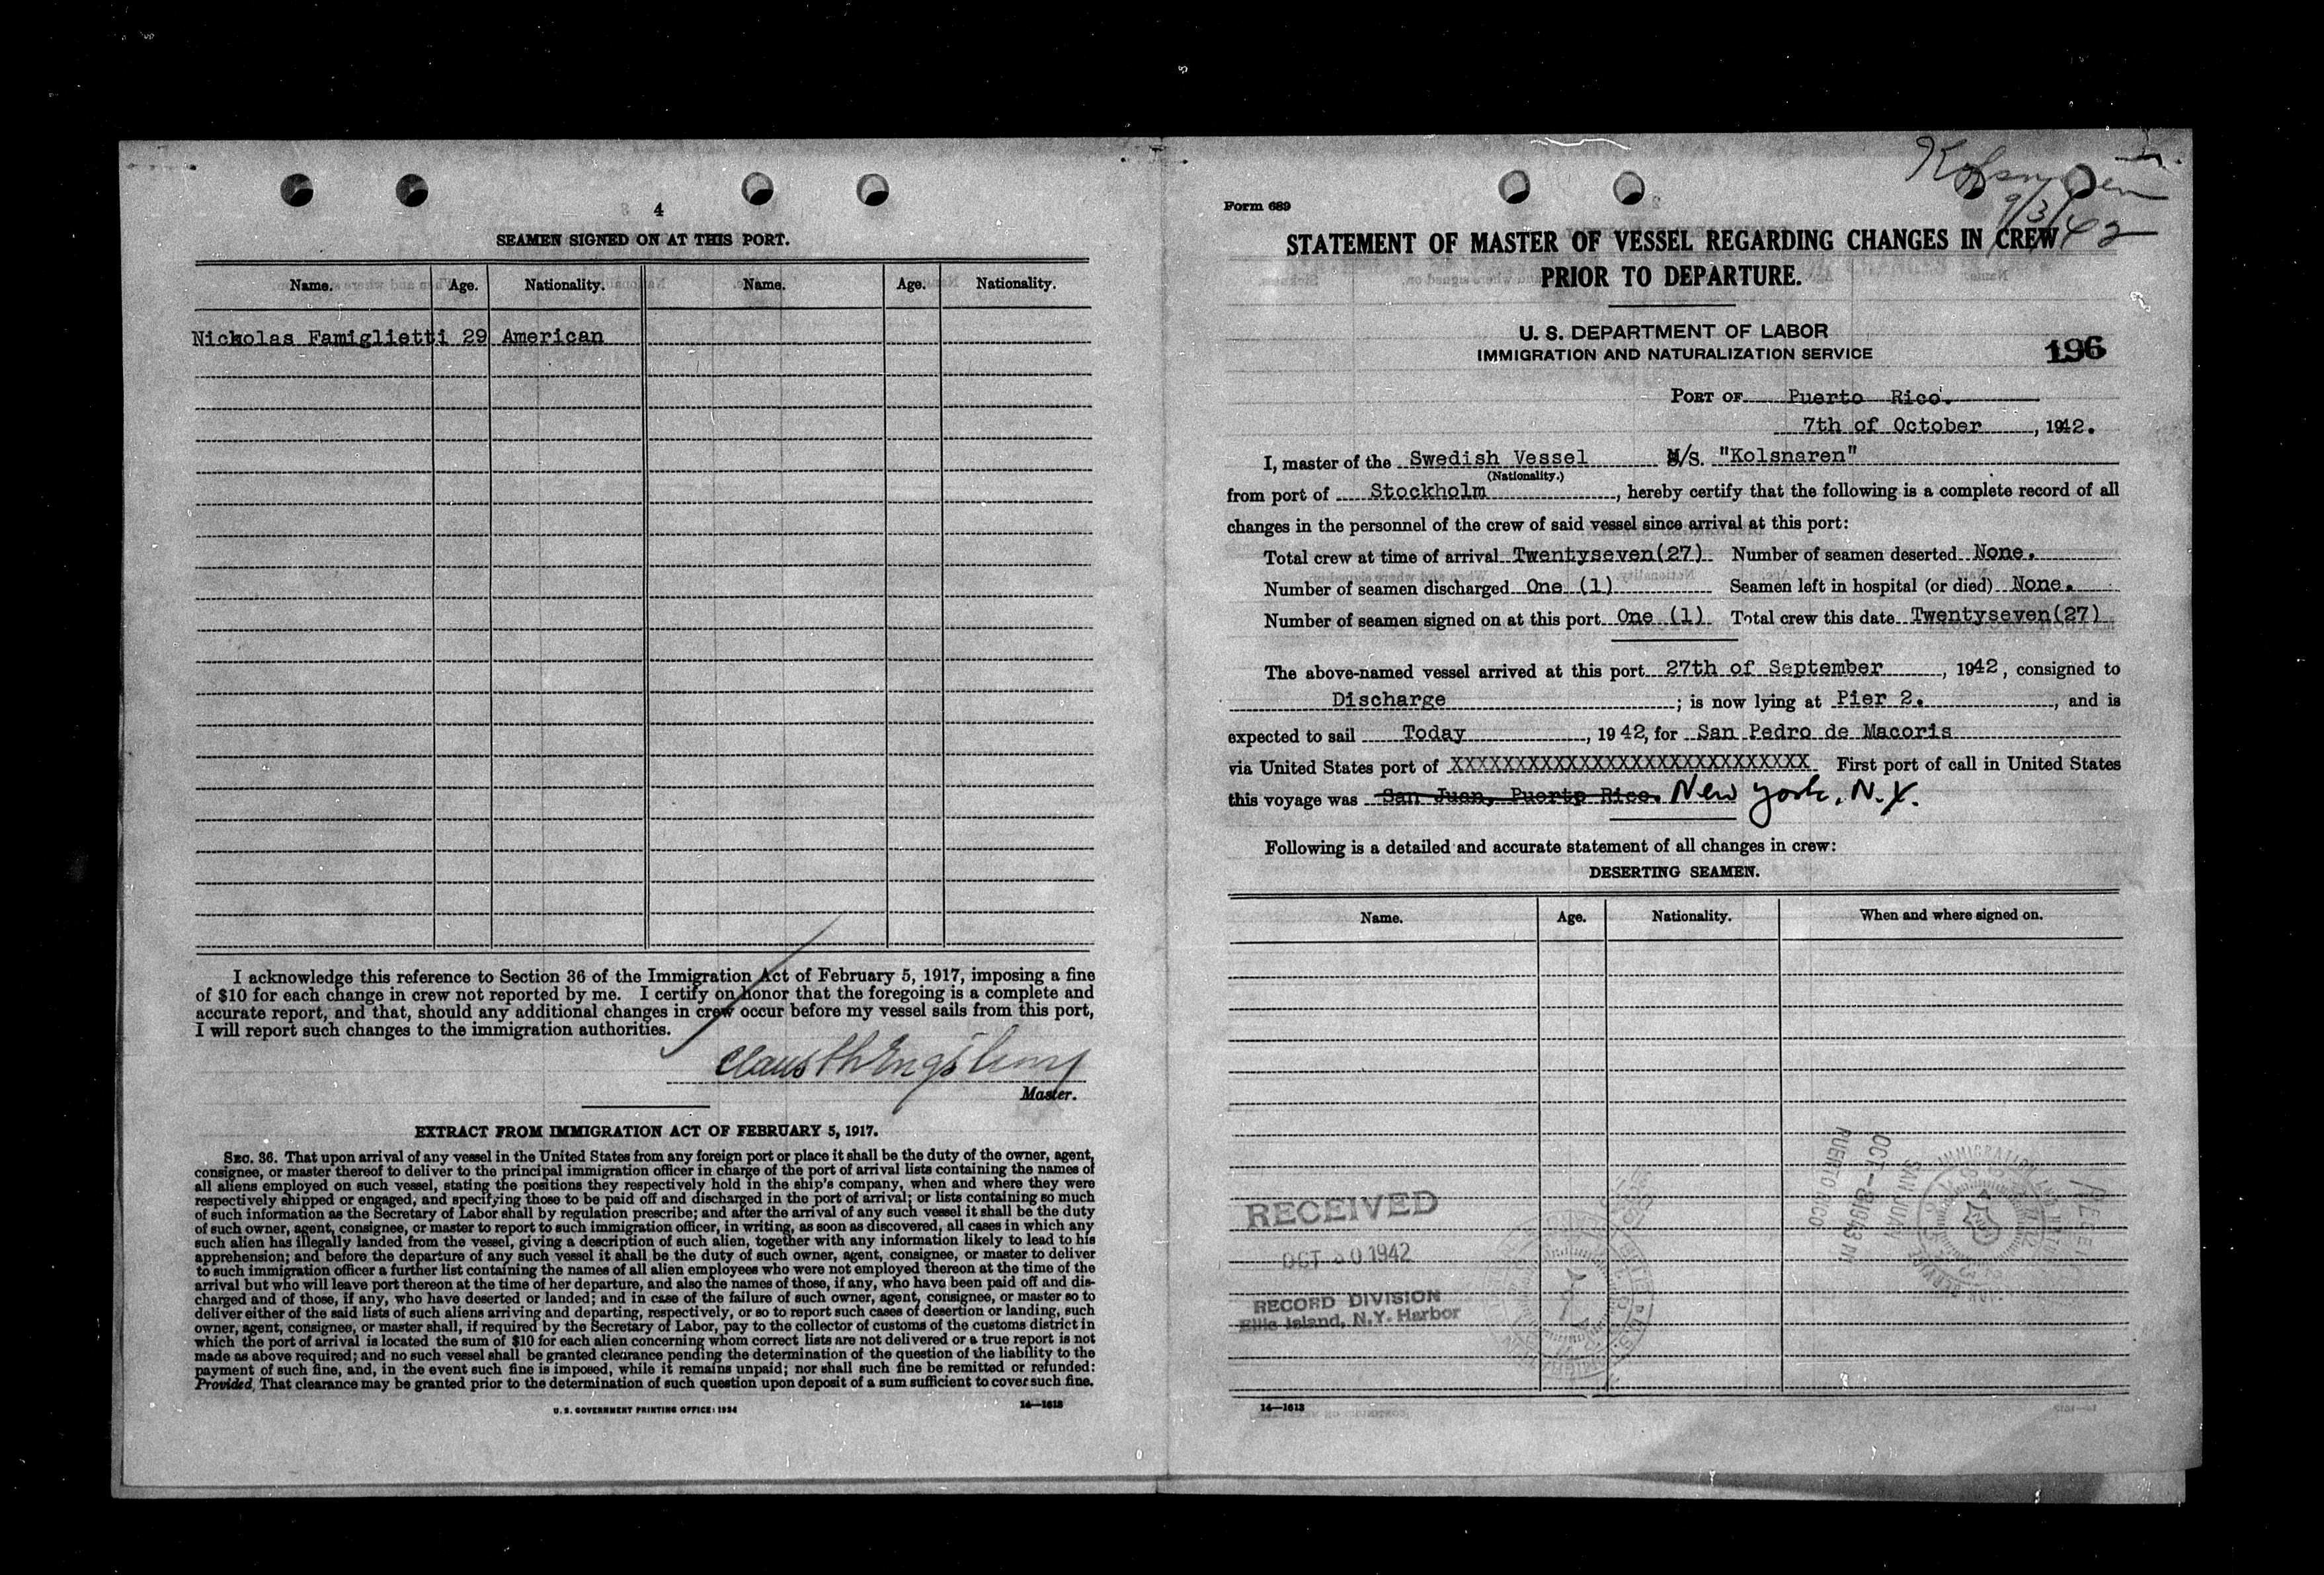 4
SEAMEN SIGNED ON AT THIS PORT.
Name. Age. Nationality. Name. Age. Nationality.
Nicholas Famiglietti 29 American
I acknowledge this reference to Section 36 of the Immigration Act of February 5, 1917, imposing a fine
of $10 for each change in crew not reported by me. I certify on honor that the foregoing is a complete and
accurate report, and that, should any additional changes in crew occur before my vessel sails from this port,
I will report such changes to the immigration authorities.
Claus
Master.
EXTRACT FROM IMMIGRATION ACT OF FEBRUARY 5, 1917.
SEC. 36. That upon arrival of any vessel in the United States from any foreign port or place it shall be the duty of the owner, agent,
consignee, or master thereof to deliver to the principal immigration officer in charge of the port of arrival lists containing the names of
all aliens employed on such vessel, stating the positions they respectively hold in the ship's company, when and where they were
respectively shipped or engaged, and specifying those to be paid off and discharged in the port of arrival; or lists containing so much
of such information as the Secretary of Labor shall by regulation prescribe; and after the arrival of any such vessel it shall be the duty
of such owner, agent, consignee, or master to report to such immigration officer, in writing, as soon as discovered, all cases in which any
such alien has illegally landed from the vessel, giving a description of such alien, together with any information likely to lead to his
apprehension; and before the departure of any such vessel it shall be the duty of such owner, agent, consignee, or master to deliver
to such immigration officer a further list containing the names of all alien employees who were not employed thereon at the time of the
arrival but who will leave port thereon at the time of her departure, and also the names of those, if any, who have been paid off and dis-
charged and of those, if any, who have deserted or landed; and in case of the failure of such owner, agent, consignee, or master so to
deliver either of the said lists of such aliens arriving and departing, respectively, or so to report such cases of desertion or landing, such
owner, agent, consignee, or master shall, if required by the Secretary of Labor, pay to the collector of customs of the customs district in
which the port of arrival is located the sum of $10 for each alien concerning whom correct lists are not delivered or a true report is not
made as above required; and no such vessel shall be granted clearance pending the determination of the question of the liability to the
payment of such fine, and, in the event such fine is imposed, while it remains unpaid; nor shall such fine be remitted or refunded:
Provided, That clearance may be granted prior to the determination of such question upon deposit of a sum sufficient to cover such fine.
U. S. GOVERNMENT PRINTING OFFICE: 1934 14—1613
Kolsnaren
9/3/42
Form 689
STATEMENT OF MASTER OF VESSEL REGARDING CHANGES IN CREW
PRIOR TO DEPARTURE.
U. S. DEPARTMENT OF LABOR
IMMIGRATION AND NATURALIZATION SERVICE
196
PORT OF Puerto Rico.
7th of October, 1942.
I, master of the Swedish Vessel M/S. "Kolsnaren"
(Nationality.)
from port of Stockholm, hereby certify that the following is a complete record of all
changes in the personnel of the crew of said vessel since arrival at this port:
Total crew at time of arrival Twentyseven(27) Number of seamen deserted None.
Number of seamen discharged One (1) Seamen left in hospital (or died) None.
Number of seamen signed on at this port One (1) Total crew this date Twentyseven(27)
The above-named vessel arrived at this port 27th of September, 1942, consigned to
Discharge; is now lying at Pier 2., and is
expected to sail Today, 1942, for San Pedro de Macoris
via United States port of XXXXXXXXXXXXXXXXXXXXXXXXXXXX First port of call in United States
this voyage was San Juan, Puerto Rico. New York, N.Y.
Following is a detailed and accurate statement of all changes in crew:
DESERTING SEAMEN.
Name. Age. Nationality. When and where signed on.
RECEIVED
OCT 30 1942
RECORD DIVISION
Ellis Island, N.Y. Harbor
SAN JUAN
PUERTO RICO
14—1613